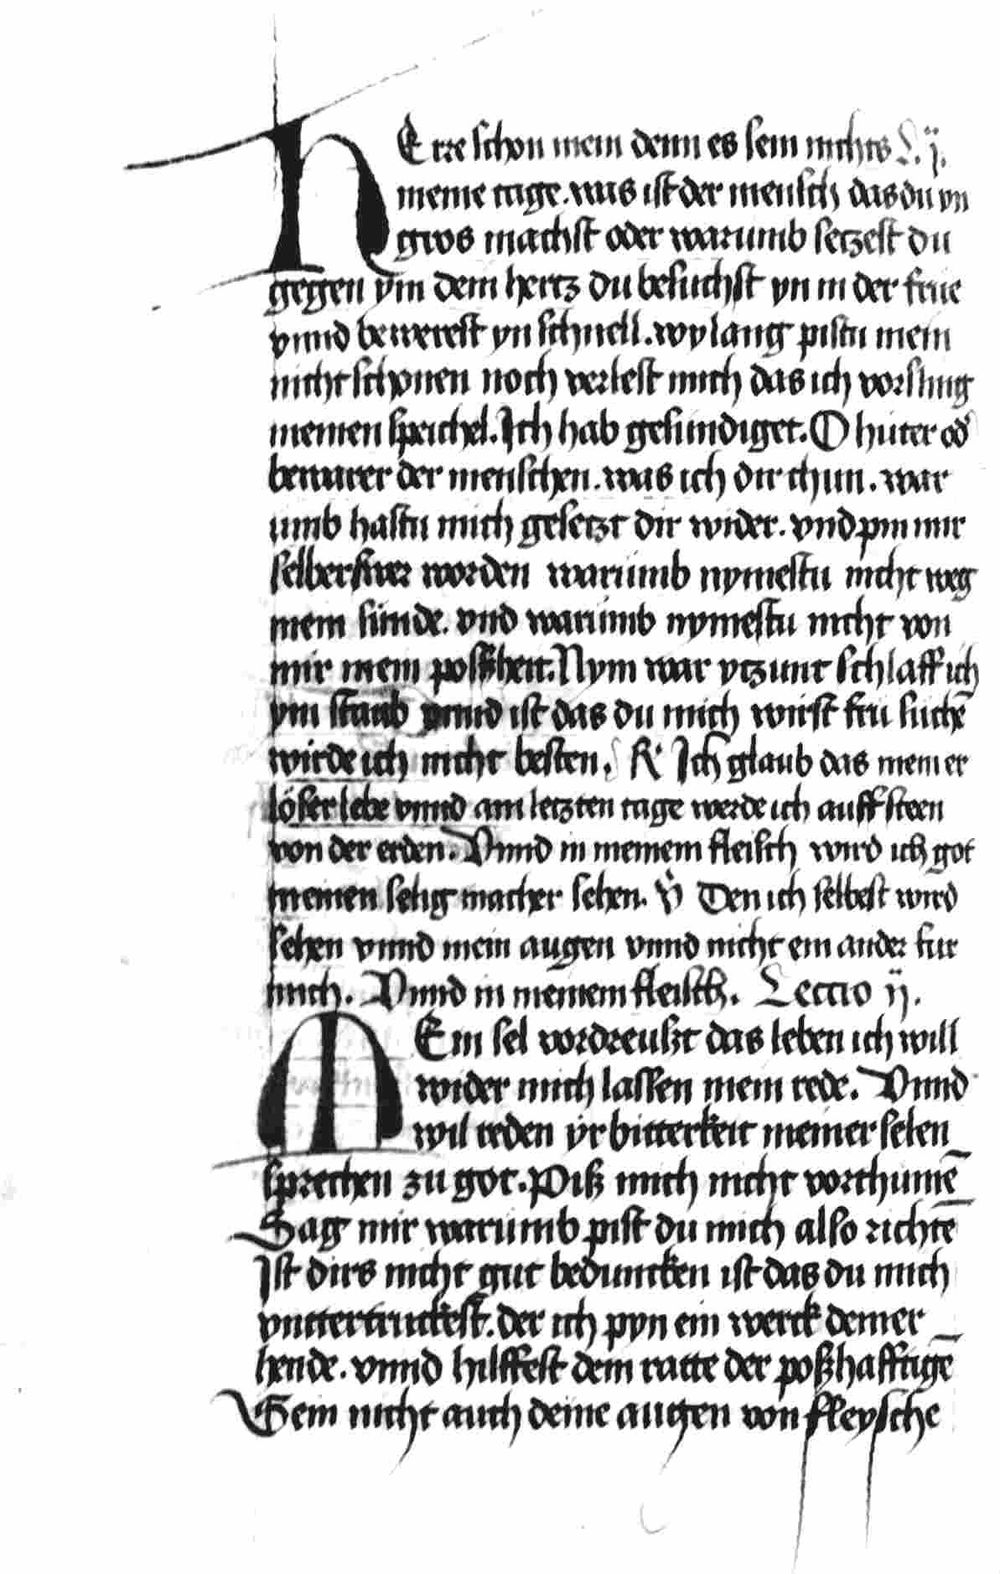 HErre schon mein denn es sein nichts L. ij.
meine tage. was ist der mensch das du yn
gros machst oder warumb setzest du
gegen ym dein hertz du besuchst yn in der frue
vnnd bewerest yn schnell. wy lang pistu mein
nicht schonen noch verlest mich das ich vorsling
meinen speichel. Ich hab gesundiget. O huter od
bewarer der menschen. was ich dir thun. war
umb hastu mich gesetzt dir wider. vnd pin mir
selber swer worden warumb nymestu nicht weg
mein sunde. vnd warumb nymestu nicht von
mir mein poßheit. Nym war ytzunt schlaff ich
ym staub vnnd ist das du mich wirst fru suchē
wirde ich nicht besten. R Ich glaub das mein er
löser lebe vnnd am letzten tage werde ich auff steen
von der erden. Vnnd in meinem fleisch wird ich got
meinen selig macher sehen. V Den ich selbest wird
sehen vnnd mein augen vnnd nicht ein ander fur
mich. Vnnd in meinem fleisch. Lectio ij.
MEin sel vordreußt das leben ich will
wider mich lassen mein rede. Vnnd
wil reden yr bitterkeit meiner selen
sprechen zu got. Piß mich nicht vorthumē
Sag mir warumb pist du mich also richtē
Ist dirs nicht gut beduncken ist das du mich
vnttertruckest. der ich pyn ein werck deiner
hende. vnnd hilffest dem ratte der poßhafftigē
Sein nicht auch deine augen von fleysche